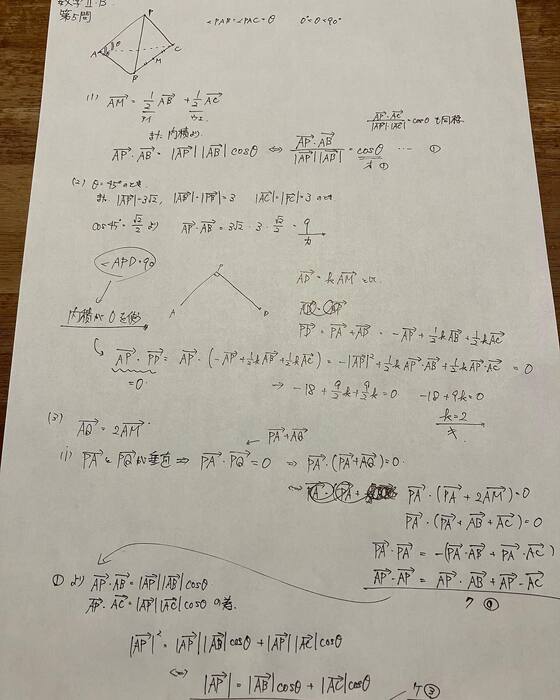 数学Ⅱ·B
第5問
∠PAB=∠PAC=θ 0°<θ<90°
P
A θ C
M
B
(1) AM→ = 1/2 AB→ + 1/2 AC→
また 内積より
AP→·AC→/|AP→||AC→| = cosθ も同様
AP→·AB→ = |AP→||AB→|cosθ ⇔ AP→·AB→/|AP→||AB→| = cosθ … ①
(2) θ=45°のとき
また |AP→|=3√2, |AB→|=|PB→|=3 |AC→|=|PC→|=3 のとき
cos45°=√2/2 より AP→·AB→ = 3√2·3·√2/2 = 9
∠APD=90
P
A D
AD→ = kAM→
内積が0を使う
PD→ = PA→+AD→ = -AP→+1/2kAB→+1/2kAC→
AP→·PD→ = AP→·(-AP→+1/2kAB→+1/2kAC→) = -|AP→|²+1/2kAP→·AB→+1/2kAP→·AC→ = 0
=0
→ -18+9/2k+9/2k=0 -18+9k=0
k=2
(3) AQ→ = 2AM→
PA→+AQ→
(i) PA→とPQ→が垂直 ⇒ PA→·PQ→=0 ⇒ PA→·(PA→+AQ→)=0
PA→·(PA→+2AM→)=0
PA→·(PA→+AB→+AC→)=0
PA→·PA→ = -(PA→·AB→+PA→·AC→)
AP→·AP→ = AP→·AB→+AP→·AC→
ク ⓪
①より AP→·AB→=|AP→||AB→|cosθ
AP→·AC→=|AP→||AC→|cosθ の為
|AP→|² = |AP→||AB→|cosθ+|AP→||AC→|cosθ
⇔ |AP→| = |AB→|cosθ+|AC→|cosθ
ケ ③